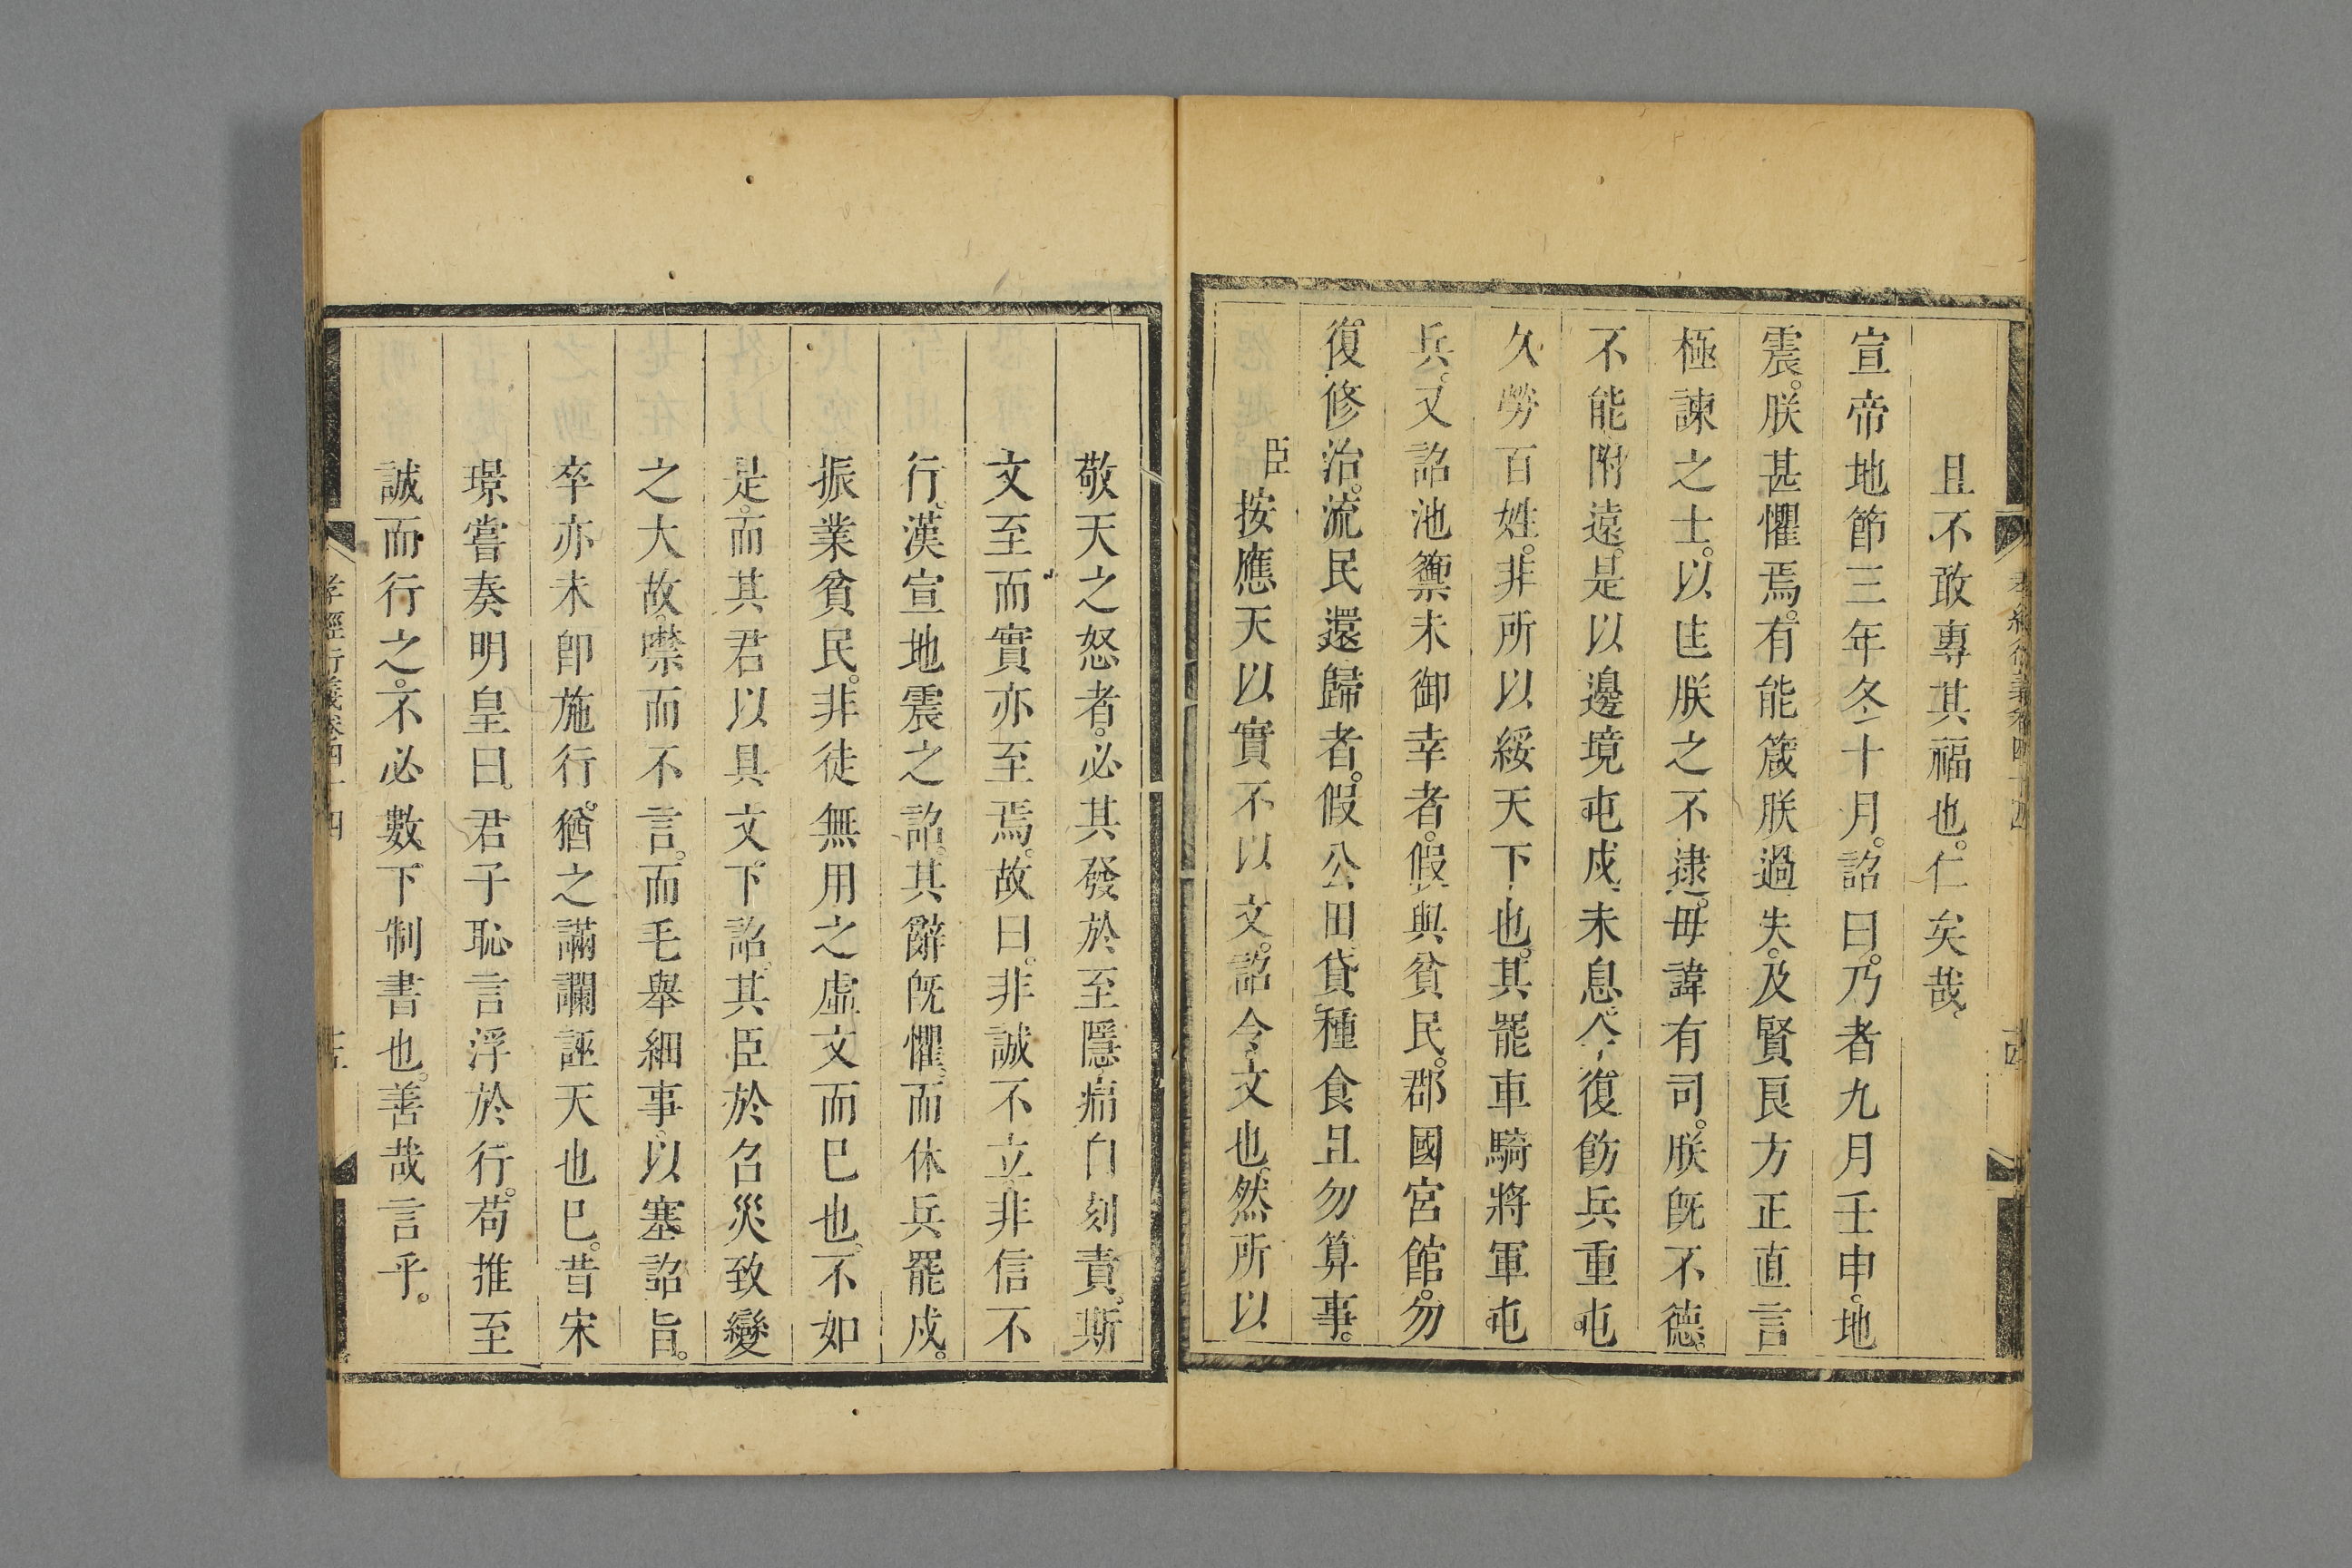 且不敢專其福也。仁矣哉。
宣帝地節三年冬十月。詔曰。乃者九月壬申。地
震。朕甚懼焉。有能箴朕過失。及賢良方正直言
極諫之士。以匡朕之不逮。毋諱有司。朕旣不德。
不能附遠。是以邊境屯戍未息。今復飭兵重屯。
久勞百姓。非所以綏天下也。其罷車騎將軍屯
兵。又詔池籞未御幸者。假與貧民。郡國宮館。勿
復修治。流民還歸者。假公田貸種食且勿算事。
臣按應天以實不以文。詔令文也。然所以
敬天之怒者。必其發於至隱痛自刻責。斯
文至而實亦至焉。故曰。非誠不立非信不
行。漢宣地震之詔。其辭旣懼。而休兵罷戍。
振業貧民。非徒無用之虛文而巳也。不如
是。而其君以具文下詔。其臣於召災致變
之大故。噤而不言。而毛舉細事。以塞詔旨。
卒亦未卽施行。猶之讕讕誣天也巳。昔宋
璟嘗奏明皇曰。君子恥言浮於行。苟推至
誠而行之。不必數下制書也。善哉言乎。
孝經衍義卷四十四